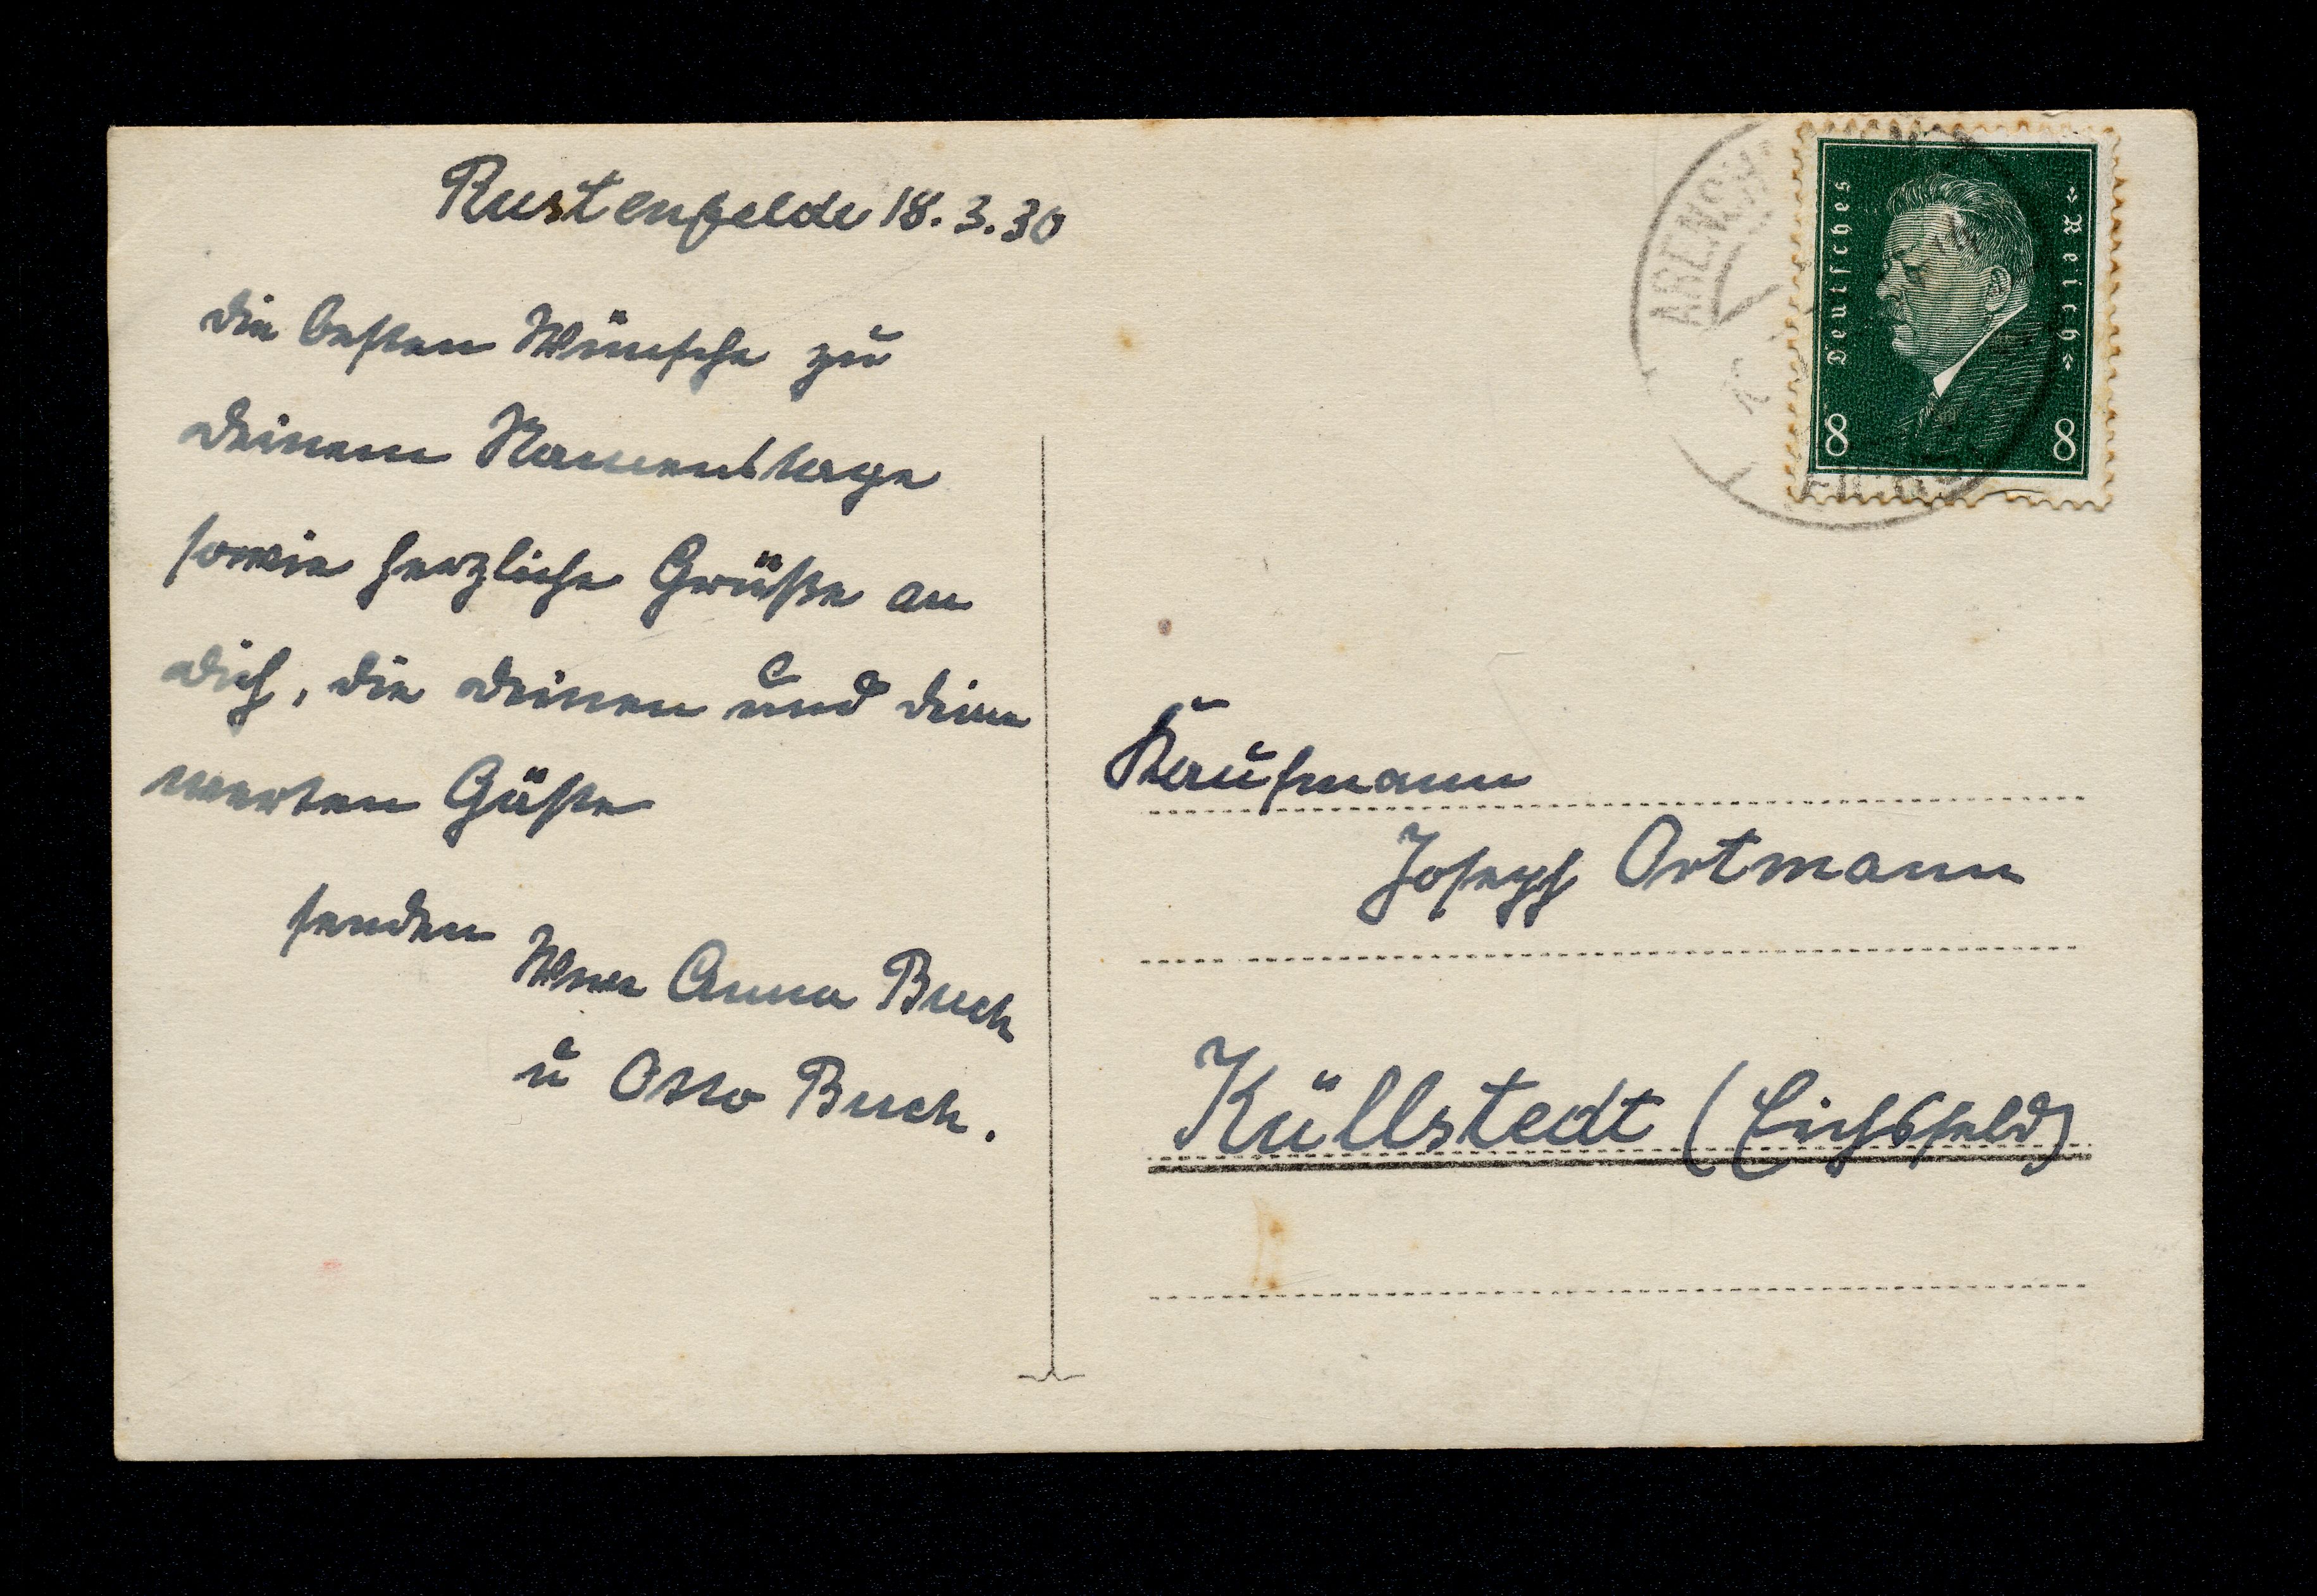 Rustenfelde 18.3.30
die besten Wünsche zu
deinem Namenstage
sowie herzliche Grüße an
dich, die deinen und deine
werten Gäste
senden
Wwe Anna Buch
u Otto Buch.
Deutsches Reich
8 8
ARENSH
Kaufmann
Joseph Ortmann
Küllstedt (Eichsfeld)